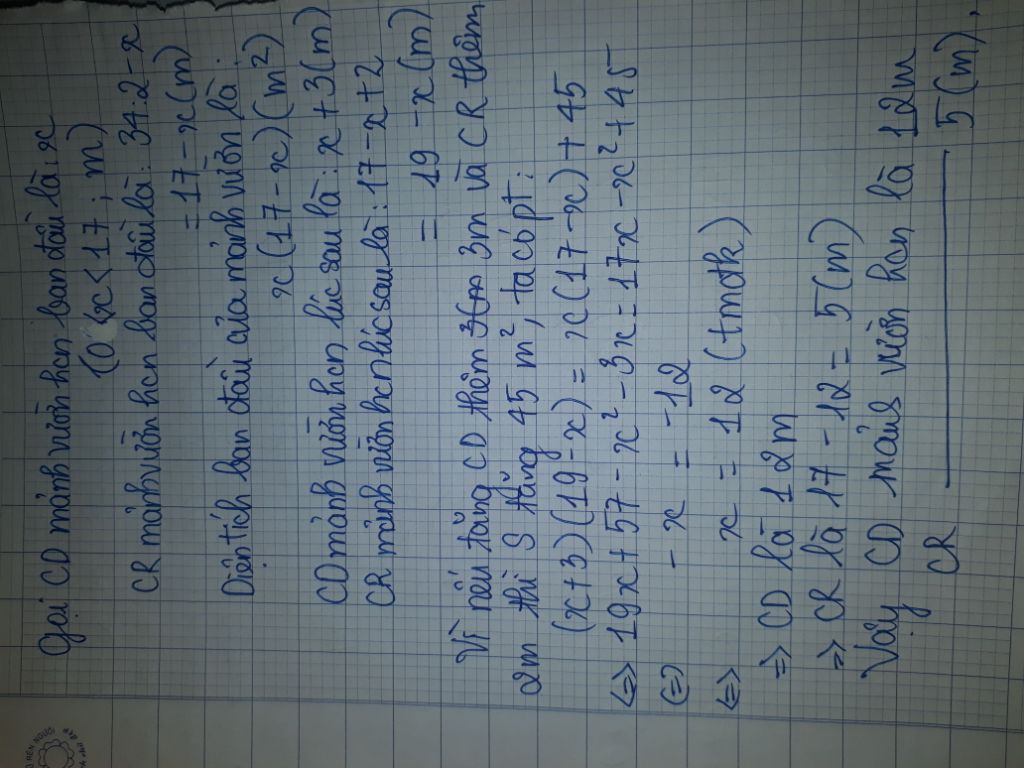 Gọi CD mảnh vườn hcn ban đầu là: x
(0 < x < 17 ; m)
CR mảnh vườn hcn ban đầu là: 34:2-x
= 17 - x (m)
Diện tích ban đầu của mảnh vườn là:
x (17 - x) (m²)
CD mảnh vườn hcn lúc sau là: x + 3 (m)
CR mảnh vườn hcn lúc sau là: 17 - x + 2
= 19 - x (m)
Vì nếu tăng CD thêm 3m và CR thêm
2m thì S tăng 45 m², ta có pt:
(x+3)(19-x) = x(17-x) + 45
<=> 19x + 57 - x² - 3x = 17x - x² + 45
<=> - x = -12
<=> x = 12 (tmđk)
=> CD là 12 m
=> CR là 17 - 12 = 5 (m)
Vậy CD mảnh vườn hcn là 12m
CR ———— 5 (m).